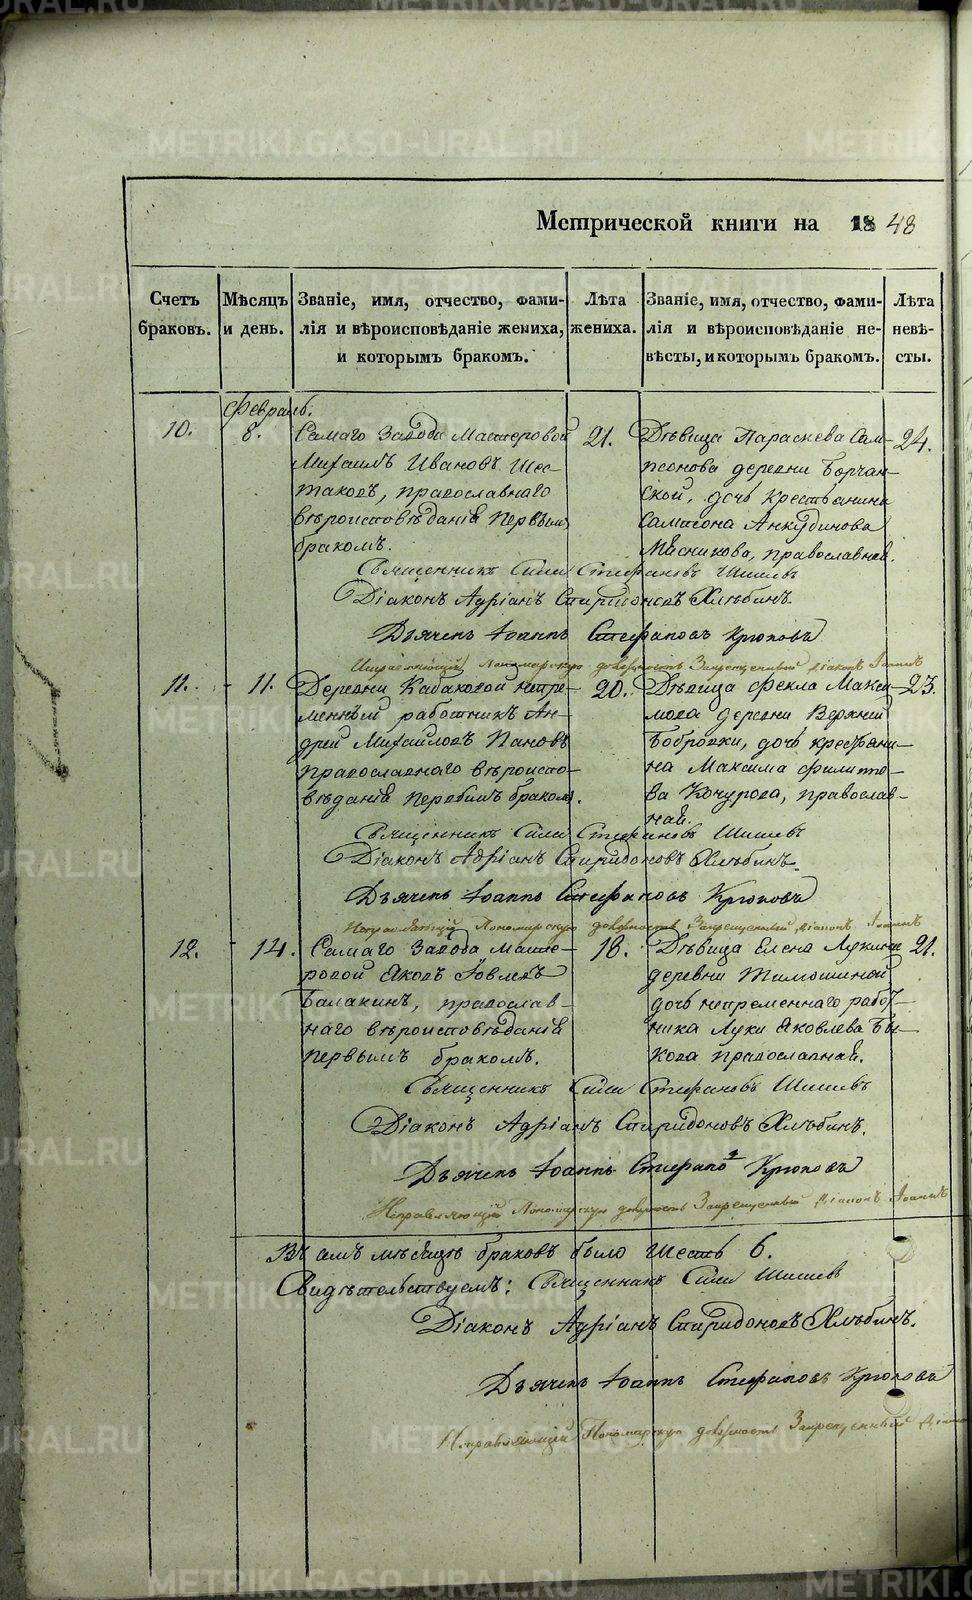 METRIKI.GASO-URAL.RU
Метрической книги на 1848
Счетъ браковъ.
Мѣсяцъ и день.
Званіе, имя, отчество, фами-
лія и вѣроисповѣданіе жениха,
и которымъ бракомъ.
Лѣта жениха.
Званіе, имя, отчество, фами-
лія и вѣроисповѣданіе не-
вѣсты, и которымъ бракомъ.
Лѣта невѣ-
сты.
Февраль.
10.
8.
Самаго Завода Мастеровой
Михаилъ Ивановъ Шес-
таковъ, православнаго
вѣроисповѣданія первымъ
бракомъ.
21.
Дѣвица Параскева Сам-
псонова деревни Борчан-
ской, дочь крестьянина
Самсона Анкудинова
Мясникова, православная.
24.
Священникъ Сила Стефановъ Шишевъ
Діаконъ Адріанъ Спиридоновъ Хлѣбинъ.
Дьячекъ Іоаннъ Стефановъ Крюковъ
Исправляющій Пономарскую должность Запрещенный Діаконъ Іоаннъ
11.
11.
Деревни Кабаковой непре-
менный работникъ Ан-
дрей Михайловъ Пановъ
православнаго вѣроиспо-
вѣданія первымъ бракомъ.
20.
Дѣвица Фекла Макси-
мова деревни Верхней
Бобровки, дочь крестьяни-
на Максима Филиппо-
ва Кочурова, православ-
ная.
23.
Священникъ Сила Стефановъ Шишевъ
Діаконъ Адріанъ Спиридоновъ Хлѣбинъ.
Дьячекъ Іоаннъ Стефановъ Крюковъ
Исправляющій Пономарскую должность Запрещенный Діаконъ Іоаннъ
12.
14.
Самаго Завода Масте-
ровой Яковъ Іовлевъ
Балакинъ, православ-
наго вѣроисповѣданія
первымъ бракомъ.
18.
Дѣвица Елена Лукина
деревни Тимошиной
дочь непременнаго работ-
ника Луки Яковлева Бы-
кова православная.
21.
Священникъ Сила Стефановъ Шишевъ
Діаконъ Адріанъ Спиридоновъ Хлѣбинъ.
Дьячекъ Іоаннъ Стефановъ Крюковъ
Исправляющій Пономарскую должность Запрещенный Діаконъ Іоаннъ
Въ семъ мѣсяцѣ браковъ было шесть 6.
Свидѣтельствуемъ: Священникъ Сила Шишевъ
Діаконъ Адріанъ Спиридоновъ Хлѣбинъ.
Дьячекъ Іоаннъ Стефановъ Крюковъ
Исправляющій Пономарскую должность Запрещенный